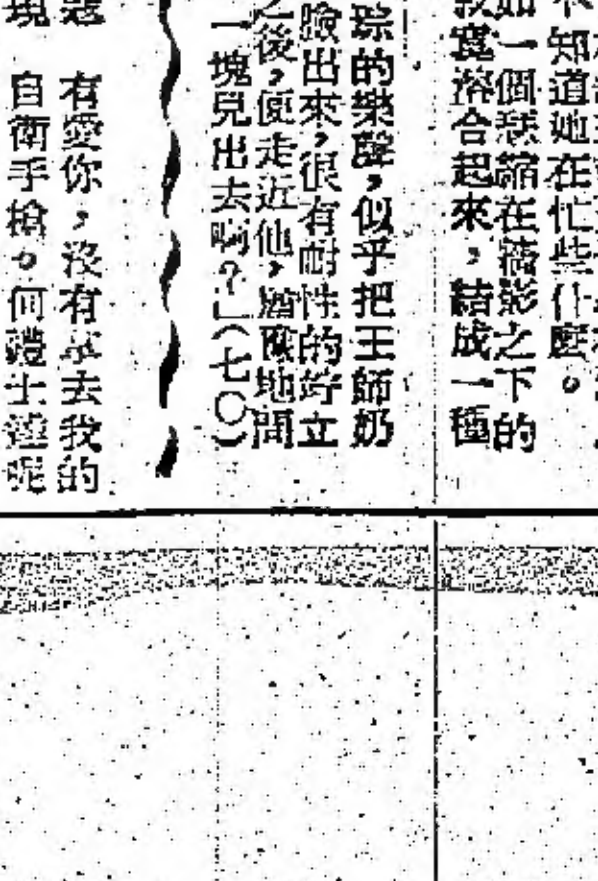 不知道她在忙些什麼。
如一個瑟縮在牆影之下的
寂寞溶合起來，結成一種
琮的樂聲，似乎把王師奶
臉出來，很有耐性的竚立
之後，便走近他，地問
一塊兒出去嗎？」（七〇）
有愛你，沒有去我的
自衛手槍。何禮士呢